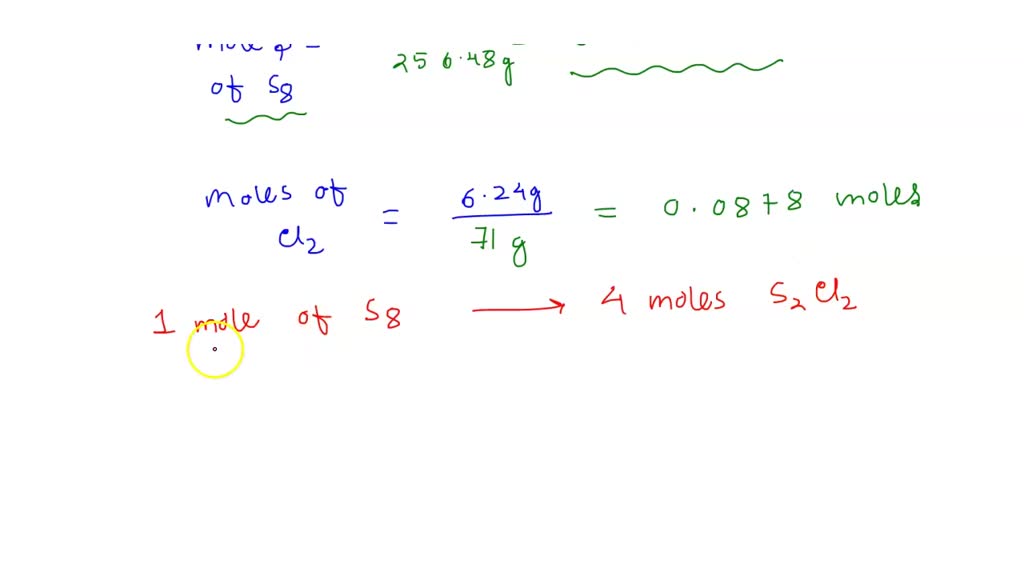 of S8
256.48g
moles of Cl2 = 6.24g / 71 g = 0.0878 moles
1 mole of S8 → 4 moles S2Cl2